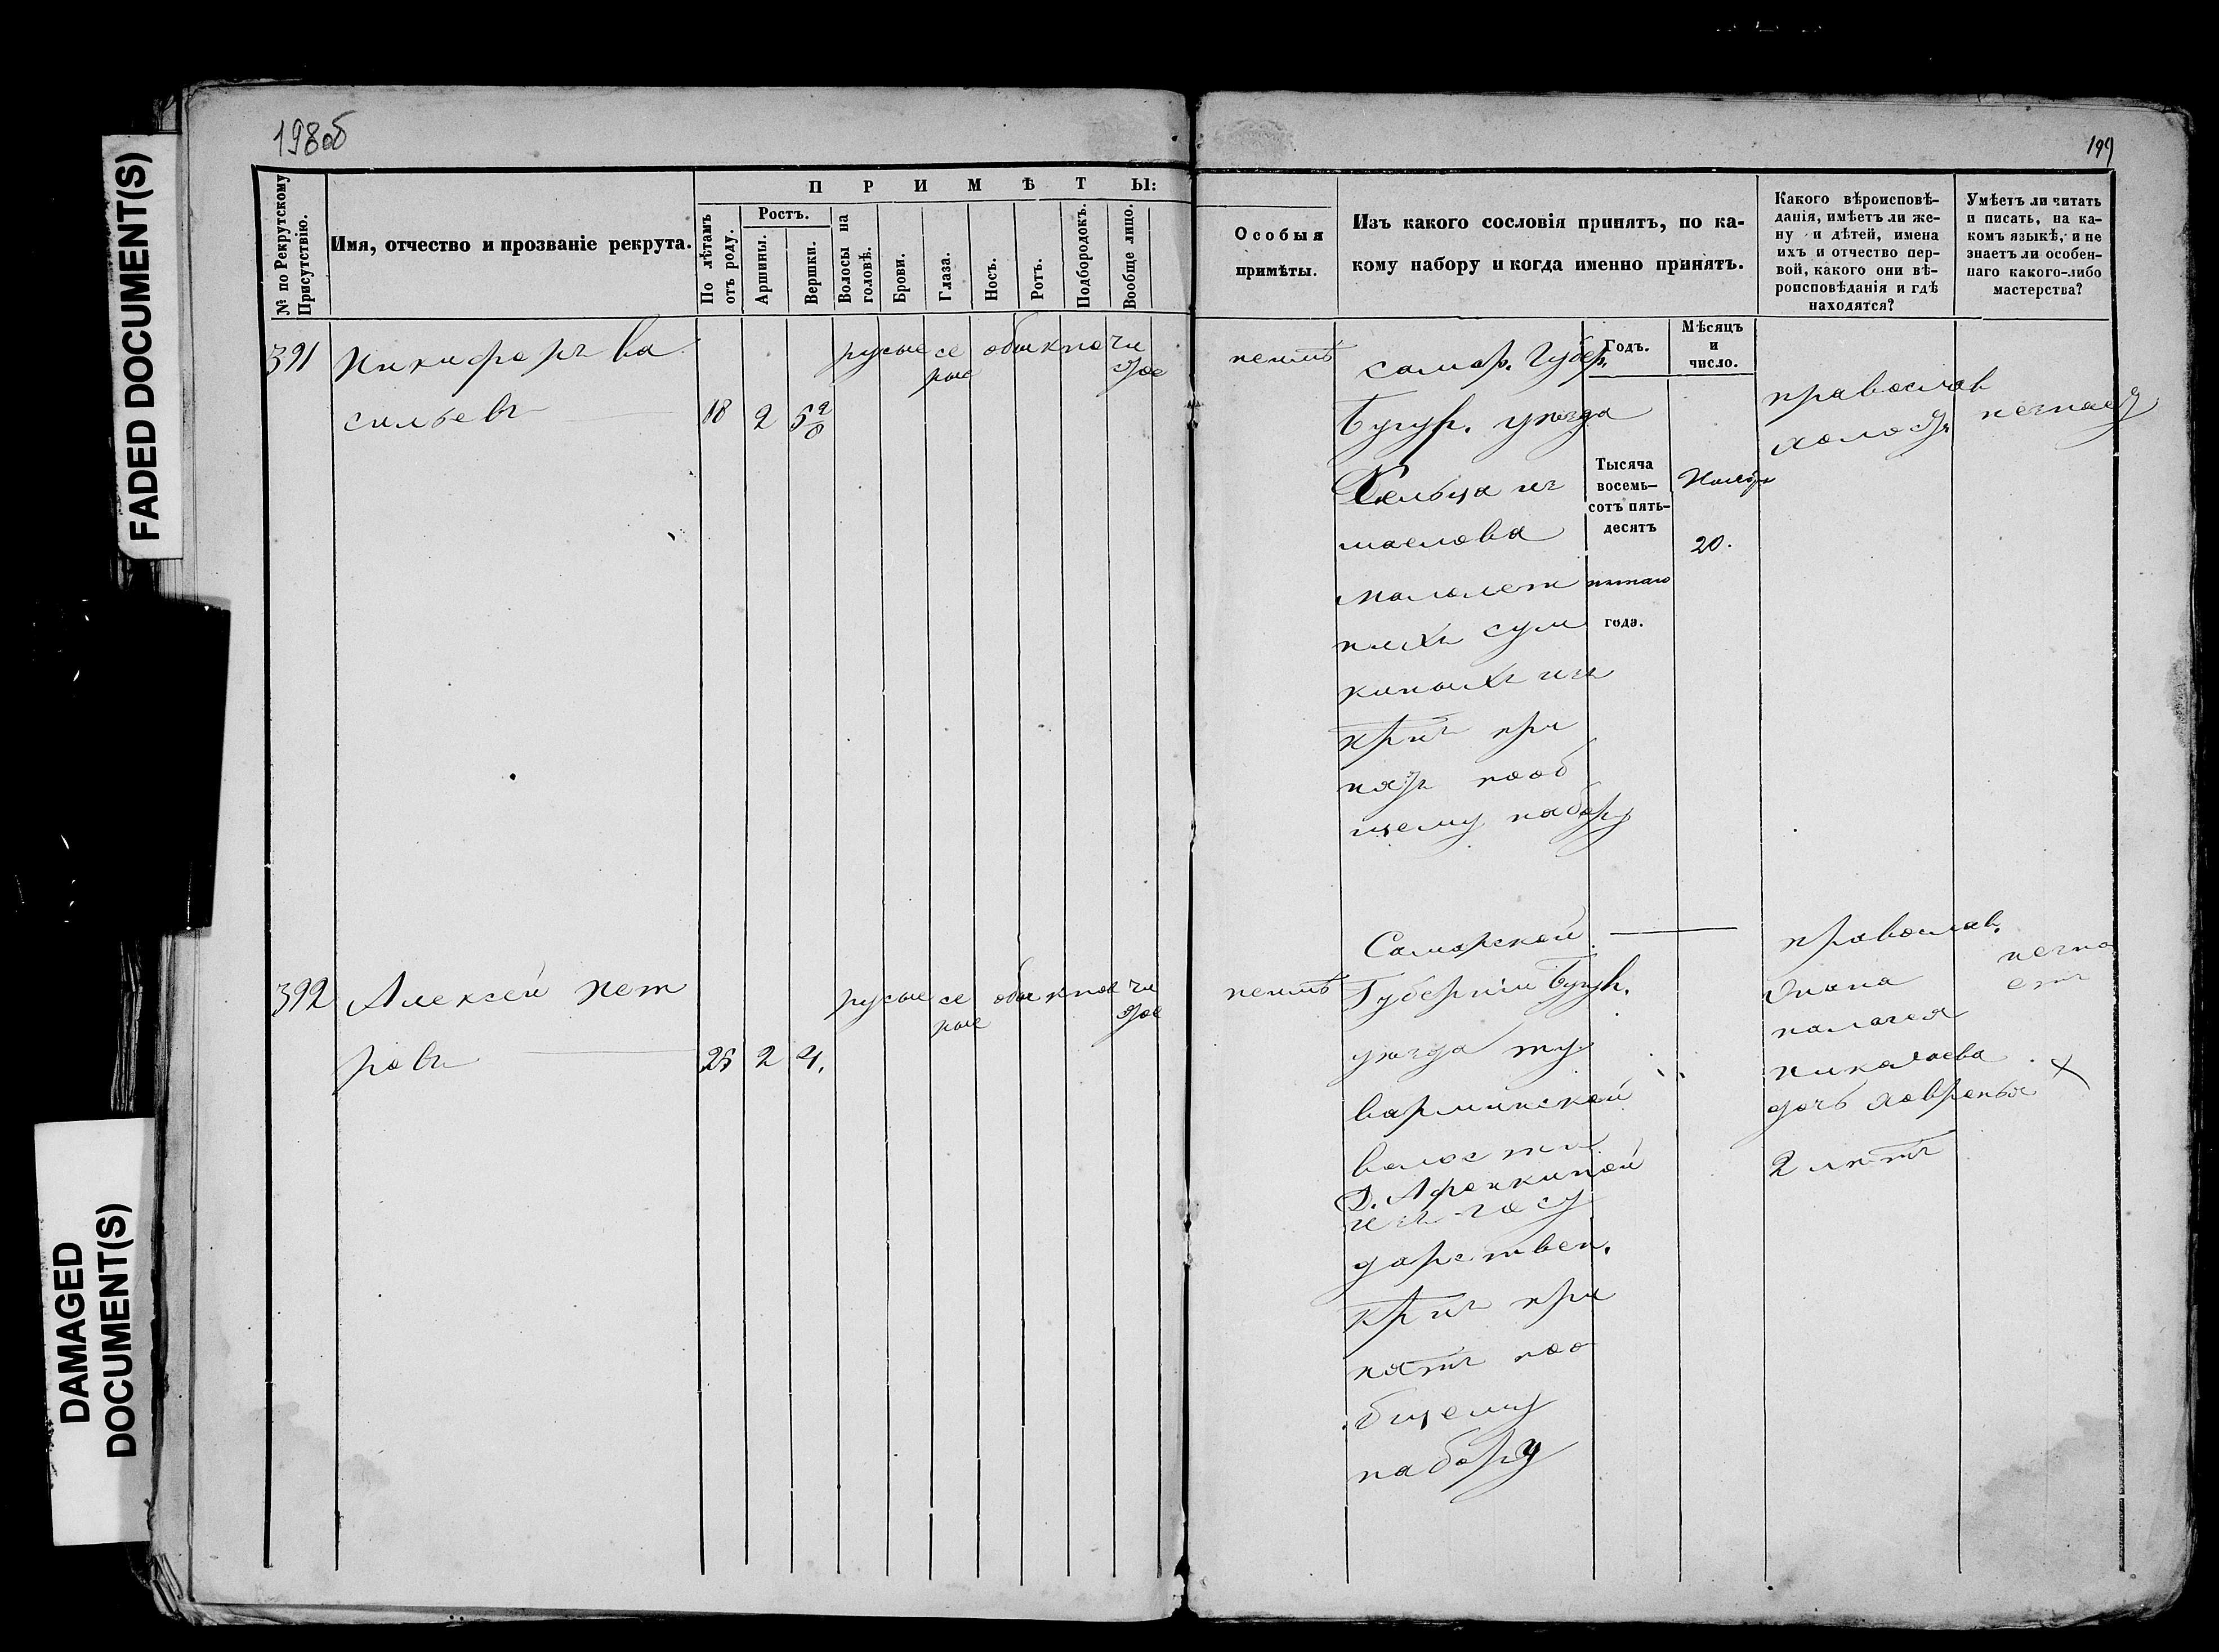 198об
199
FADED DOCUMENT(S)
DAMAGED
DOCUMENT(S)
№ по Рекрутскому
Присутствію.
Имя, отчество и прозваніе рекрута.
ПРИМѢТЫ:
По лѣтамъ
отъ роду.
Ростъ.
Аршины.
Вершки.
Волосы на
головѣ.
Брови.
Глаза.
Носъ.
Ротъ.
Подбородокъ.
Вообще лицо.
Особыя
примѣты.
Изъ какого сословія принятъ, по ка-
кому набору и когда именно принятъ.
Годъ.
Мѣсяцъ
и
число.
Какого вѣроисповѣ-
данія, имѣетъ ли же-
ну и дѣтей, имена
ихъ и отчество пер-
вой, какого они вѣ-
роисповѣданія и гдѣ
находятся?
Умѣетъ ли читать
и писать, на ка-
комъ языкѣ, и не
знаетъ ли особен-
наго какого-либо
мастерства?
391
Никифоръ Ва
сильевъ
18 2 5 2/8
русые се
рые
обыкно чи
стое
неимѣ
самар. Губер.
Бугур. уѣзда
Сельца из
маслова
малолет
нихъ сум
киныхъ изъ
кр изъ при
нятъ пооб
щему набору
Тысяча
восемь-
сотъ пять-
десятъ
пятаго
года.
Ноябр
20.
православ
холостъ
незнает
392
Алексей Пет
ровъ
25 2 4.
русые се
рые
обыкнов чи
стое
неимѣ
Самарской
Губерніи Бугур.
уѣзда ту
варминской
волости
Д. Афонкиной
изъ госу
дарствен.
кр изъ при
нятъ поо
бщему
набору
православ.
жена
палагея
николаева
дочь ховренья
2 лѣтъ
незна
етъ